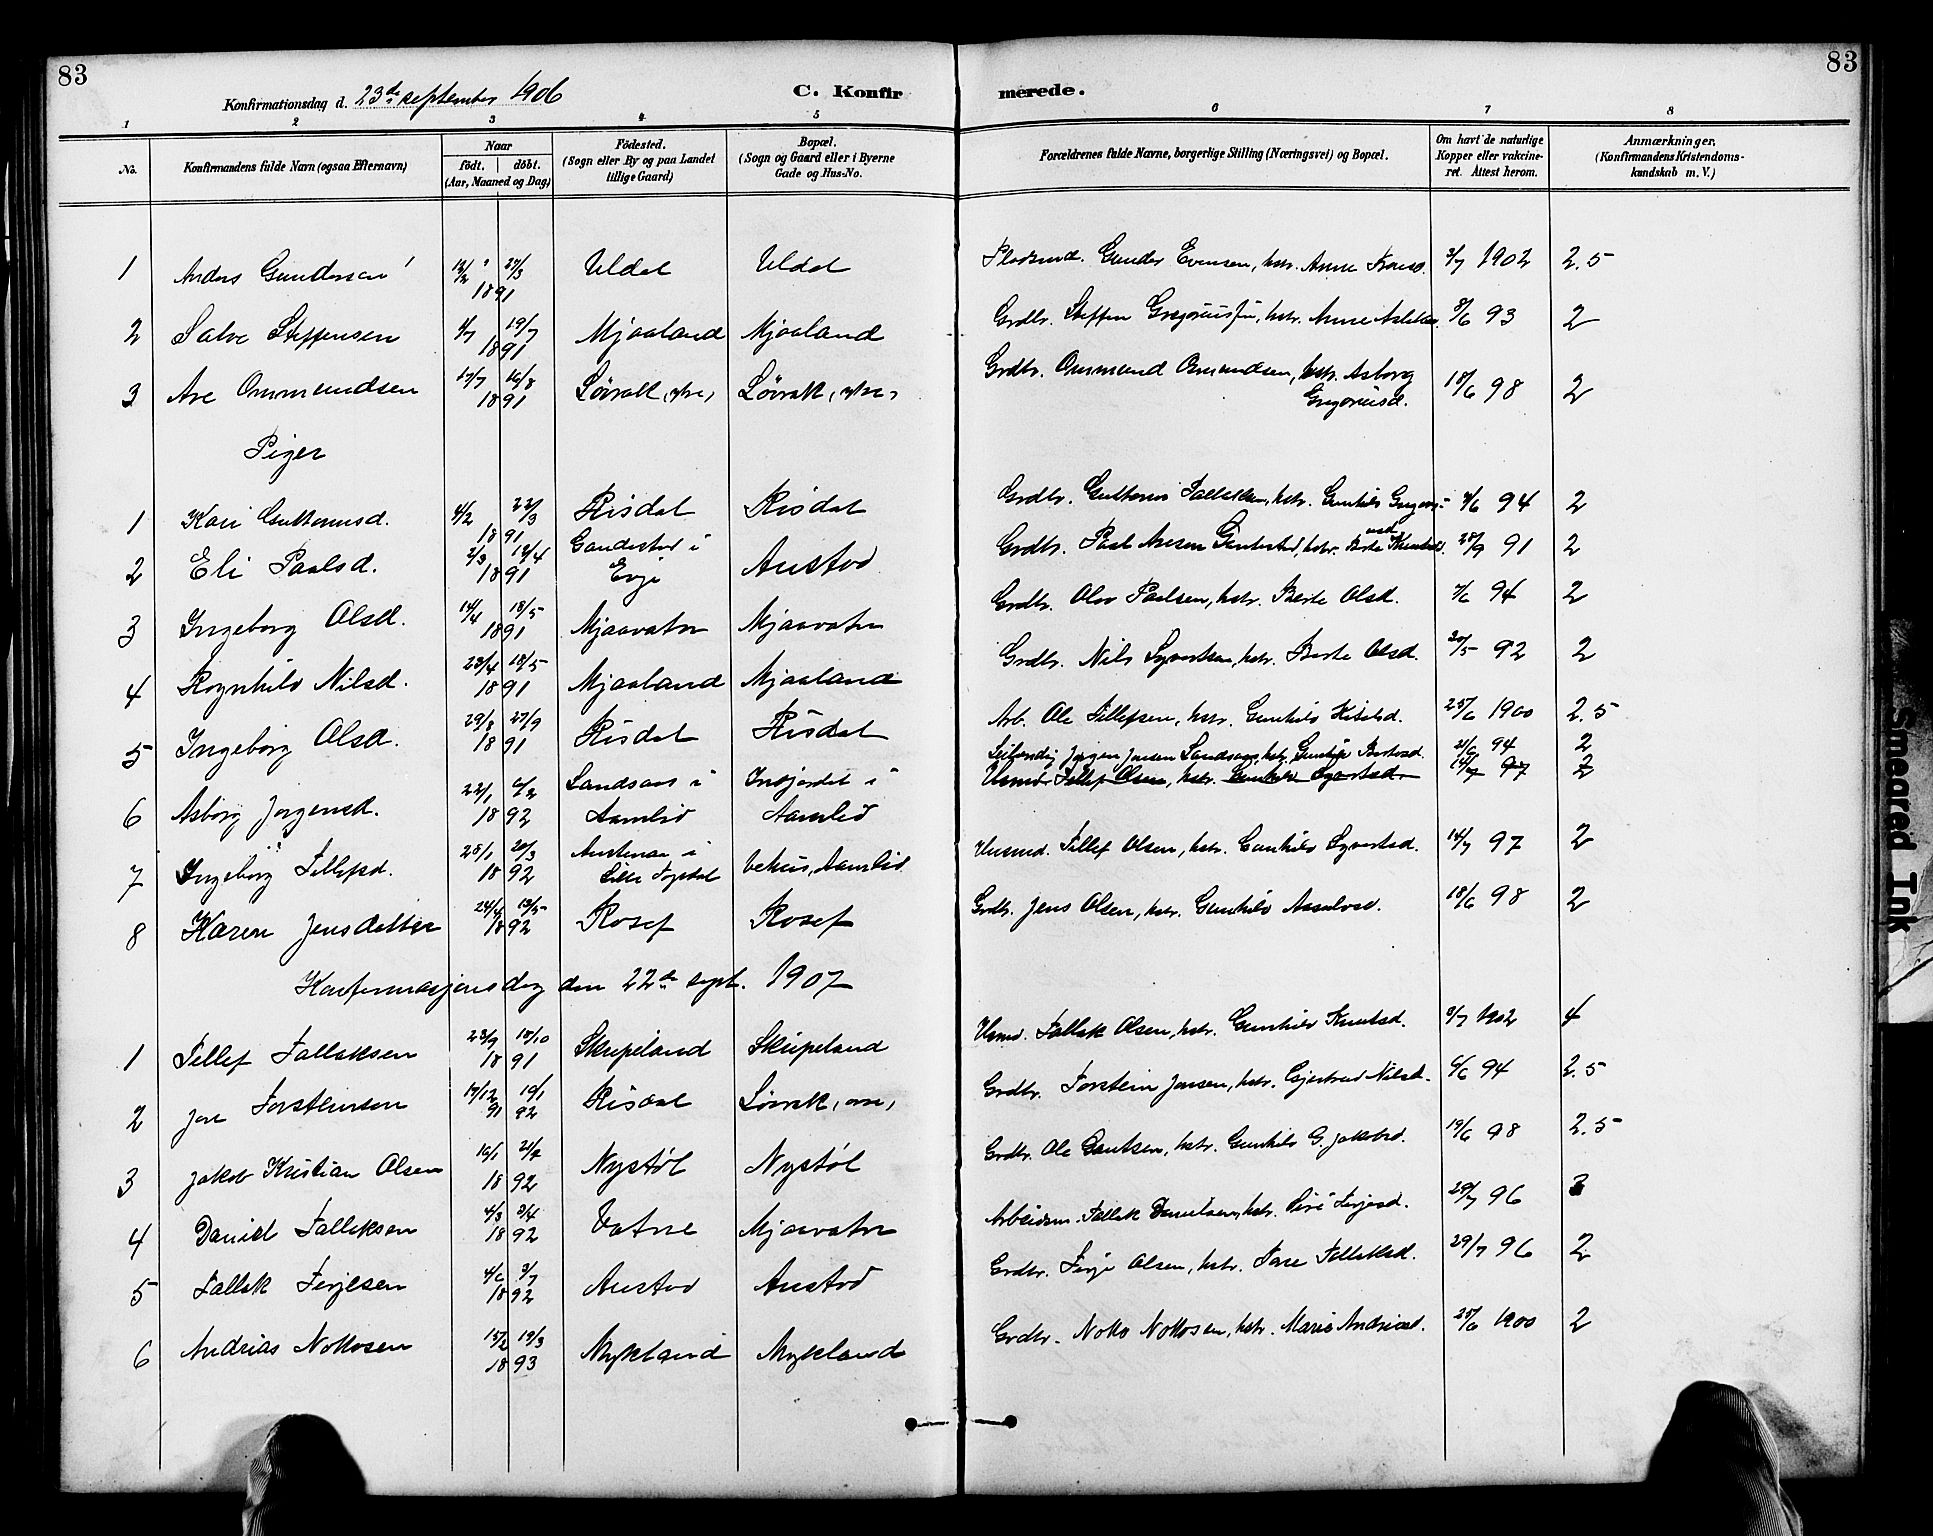 83
83
Konfirmationsdag d. 23de september 1906
C. Konfirmerede.
1 2 3 4 5 6 7 8
No.
Konfirmandens fulde Navn (ogsaa Efternavn)
Naar födt. döbt. (Aar, Maaned og Dag)
Födested. (Sogn eller By og paa Landet tillige Gaard)
Bopæl. (Sogn og Gaard eller i Byerne Gade og Hus-No.
Forældrenes fulde Navne, borgerlige Stilling (Næringsvei) og Bopæl.
Om havt de naturlige Kopper eller vakcineret. Attest herom.
Anmærkninger. (Konfirmandens Kristendomskundskab m. V.)
1 Anders Gundersen 12/2 27/3 1891 Uldal Uldal Gunder Evensen, hstr. Anne 3/7 1902 2.5
2 Salve Steffensen 4/7 19/7 1891 Mjaaland Mjaaland Grdbr. Steffen hstr. Anne 8/6 93 2
3 Are Ommundsen 17/7 16/8 1891 Løvrak, Løvrak, Grdbr. Ommund Omundsen, hstr. Asborg Gregoriusd. 18/6 98 2
Piger
1 Kari Guttormsd. 4/2 22/3 1891 Risdal Risdal Grdbr. Guttorm hstr. Gunhild 94 2
2 Eli Paalsd. 2/3 12/4 1891 i Evje Austad Grdbr. Paal hstr. Berte 91 2
3 Ingeborg Olsd. 14/4 18/5 1891 Mjaavatn Mjaavatn Grdbr. Olav Paalsen, hstr. Berte Olsd. 94 2
4 Rognhild Nilsd. 23/4 18/5 1891 Mjaaland Mjaaland Grdbr. Nils Syvertsen, hstr. Berte Olsd. 20/5 92 2
5 Ingeborg Olsd. 29/8 27/9 1891 Risdal Risdal Arb. Ole Tellefsen, hstr. Gunhild 25/6 1900 2.5
6 Asborg Jørgensd. 22/1 1892 Landsaas i Aamlid i Aamlid Jørgen Jensen Landsaas, hstr. Gunhild 21/6 94 2
Husmd. Tellef Olsen, hstr. Gunhild Syvertsd. 14/7 97 2
7 Ingeborg Tellefsd. 25/1 20/3 1892 i Aamlid Husmd. Tellef Olsen, hstr. Gunhild Syvertsd. 14/7 97 2
8 Karen Jensdatter 24/4 1892 Rosef Rosef Grdbr. Jens Olsen, hstr. Gunhild 18/6 98 2
Konfirmasjonsdag den 22de sept. 1907
1 Tellef Tallaksen 23/9 18/10 1891 Skripeland Skripeland Husmd. Tallak Olsen, hstr. Gunhild Knutsd. 3/7 1902 4
2 Jon Torsteinsen 17/12 91 19/1 92 Risdal Løvrak, Grdbr. Torstein Jensen, hstr. Gjertrud Nilsd. 6/6 94 2.5
3 Jakob Kristian Olsen 16/1 1892 Nystøl Nystøl Grdbr. Ole hstr. Gunhild G. Jakobsd. 19/6 98 2.5
4 Daniel Tallaksen 4/3 3/4 1892 Vatne Mjaavatn Arbeidsm. Tallak Danielsen, hstr. Siri Terjesd. 29/7 96 3
5 Tallak Terjesen 4/6 3/7 1892 Austad Austad Grdbr. Terje Olsen, hstr. Tone Tallaksd. 29/7 96 2
6 Andrias Nottosen 15/2 19/3 1893 Mykland Mykland Grdbr. Notto Nottosen, hstr. Marie Andriasd. 25/6 1900 2
Smeared Ink